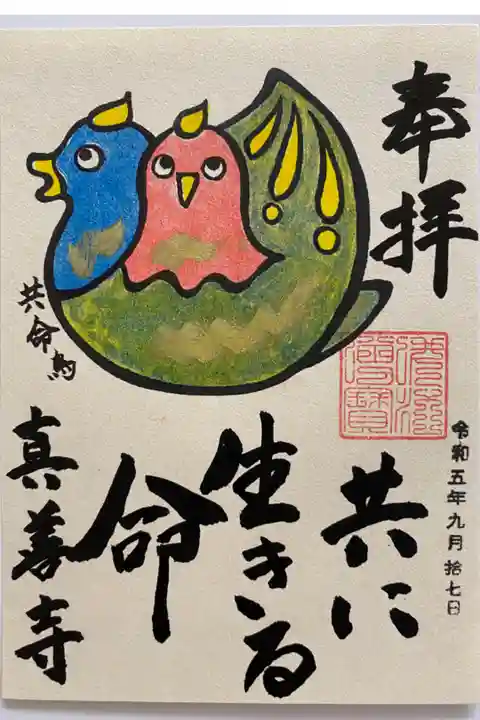 奉拝
令和五年九月拾七日
共に
生きる
命
共命鳥
真善寺